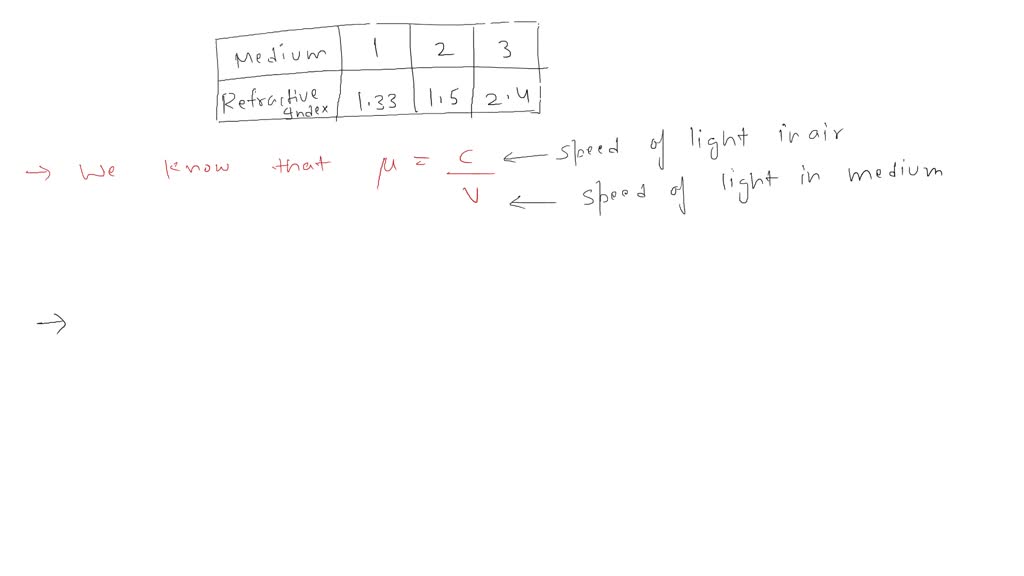 Medium 1 2 3
Refractive Index 1.33 1.5 2.4
→ We know that μ = c/v ← speed of light in air
← speed of light in medium
→